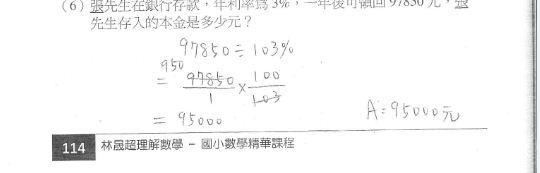 (6) 張先生在銀行存款，年利率為 3%，一年後可領回 97850 元，張
先生存入的本金是多少元？
97850 ÷ 103%
950
= 97850/1 × 100/103
= 95000
A:95000元
114 林晟超理解數學 – 國小數學精華課程